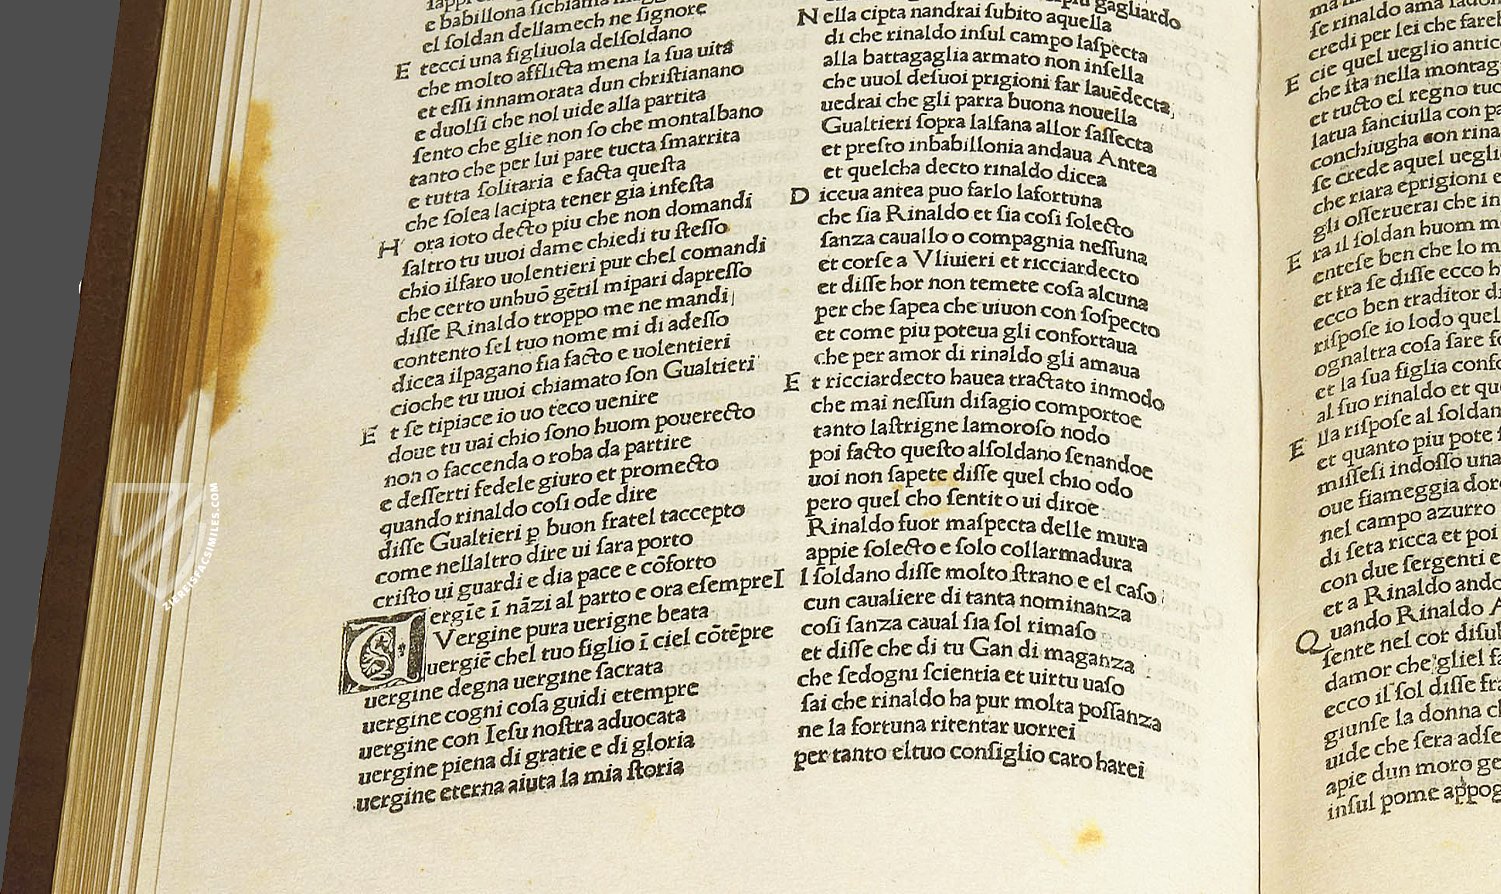 e babillona sichiama
el soldan dellamech ne signore
E tecci una figliuola delsoldano
che molto afflicta mena la sua uita
et essi innamorata dun christianano
e duolsi che nol uide alla partita
sento che glie non so che montalbano
tanto che per lui pare tucta smarrita
e tutta solitaria e facta questa
che solea lacipta tener gia infesta
H ora ioto decto piu che non domandi
saltro tu uuoi dame chiedi tu stesso
chio ilfaro uolentieri pur chel comandi
che certo unhuō gētil mipari dapresso
disse Rinaldo troppo me ne mandi
contento sel tuo nome mi di adesso
dicea ilpagano sia facto e uolentieri
cioche tu uuoi chiamato son Gualtieri
E t se tipiace io uo teco uenire
doue tu uai chio sono huom pouerecto
non o faccenda o roba da partire
e desserti fedele giuro et promecto
quando rinaldo cosi ode dire
disse Gualtieri ꝑ buon fratel taccepto
come nellaltro dire ui sara porto
cristo ui guardi e dia pace e cōforto
ergīe ī nāzi al parto e ora esempre
U Vergine pura uerigne beata
uergiē chel tuo figlio ī ciel cōtēpre
uergine degna uergine sacrata
uergine cogni cosa guidi etempre
uergine con Iesu nostra aduocata
uergine piena di gratie e di gloria
uergine eterna aiuta la mia storia
piu gagliardo
N ella cipta nandrai subito aquella
di che rinaldo insul campo laspecta
alla battagaglia armato non insella
che uuol desuoi prigioni far lauēdecta
uedrai che gli parra buona nouella
Gualtieri sopra lalfana allor sassecta
et presto inbabillonia andaua Antea
et quelcha decto rinaldo dicea
D iceua antea puo farlo lafortuna
che sia Rinaldo et sia cosi solecto
sanza cauallo o compagnia nessuna
et corse a Vliuieri et ricciardecto
et disse hor non temete cosa alcuna
per che sapea che uiuon con sospecto
et come piu poteua gli confortaua
che per amor di rinaldo gli amaua
E t ricciardecto hauea tractato inmodo
che mai nessun disagio comportoe
tanto lastrigne lamoroso nodo
poi facto questo alsoldano senandoe
uoi non sapete disse quel chio odo
pero quel cho sentito ui diroe
Rinaldo fuor maspecta delle mura
appie solecto e solo collarmadura
I l soldano disse molto strano e el caso
cun caualiere di tanta nominanza
cosi sanza caual sia sol rimaso
et disse che di tu Gan di maganza
che sedogni scientia et uirtu uaso
sai che rinaldo ha pur molta possanza
ne la fortuna ritentar uorrei
per tanto eltuo consiglio caro harei
se rinaldo ama
credi per lei che
E cie quel ueglio
che sta nella
et tucto el regno
latua fanciulla con
conchiugha con
se crede aquel
che riara eprigioni
gli osseruerai che
E ra il soldan buom
entese ben che lo
et fra se disse ecco
ecco ben traditor
rispose io lodo
ognaltra cosa fare
et la sua figlia
al suo rinaldo et
E lla rispose al
et quanto piu pote
missesi indosso una
oue fiameggia
nel campo azurro
di seta ricca et poi
con due sergenti
et a Rinaldo
Q uando Rinaldo
sente nel cor
damor che gliel
ecco il sol disse
giunse la donna
uide che sera
apie dun moro
insul pome
ZIEREISFACSIMILES.COM